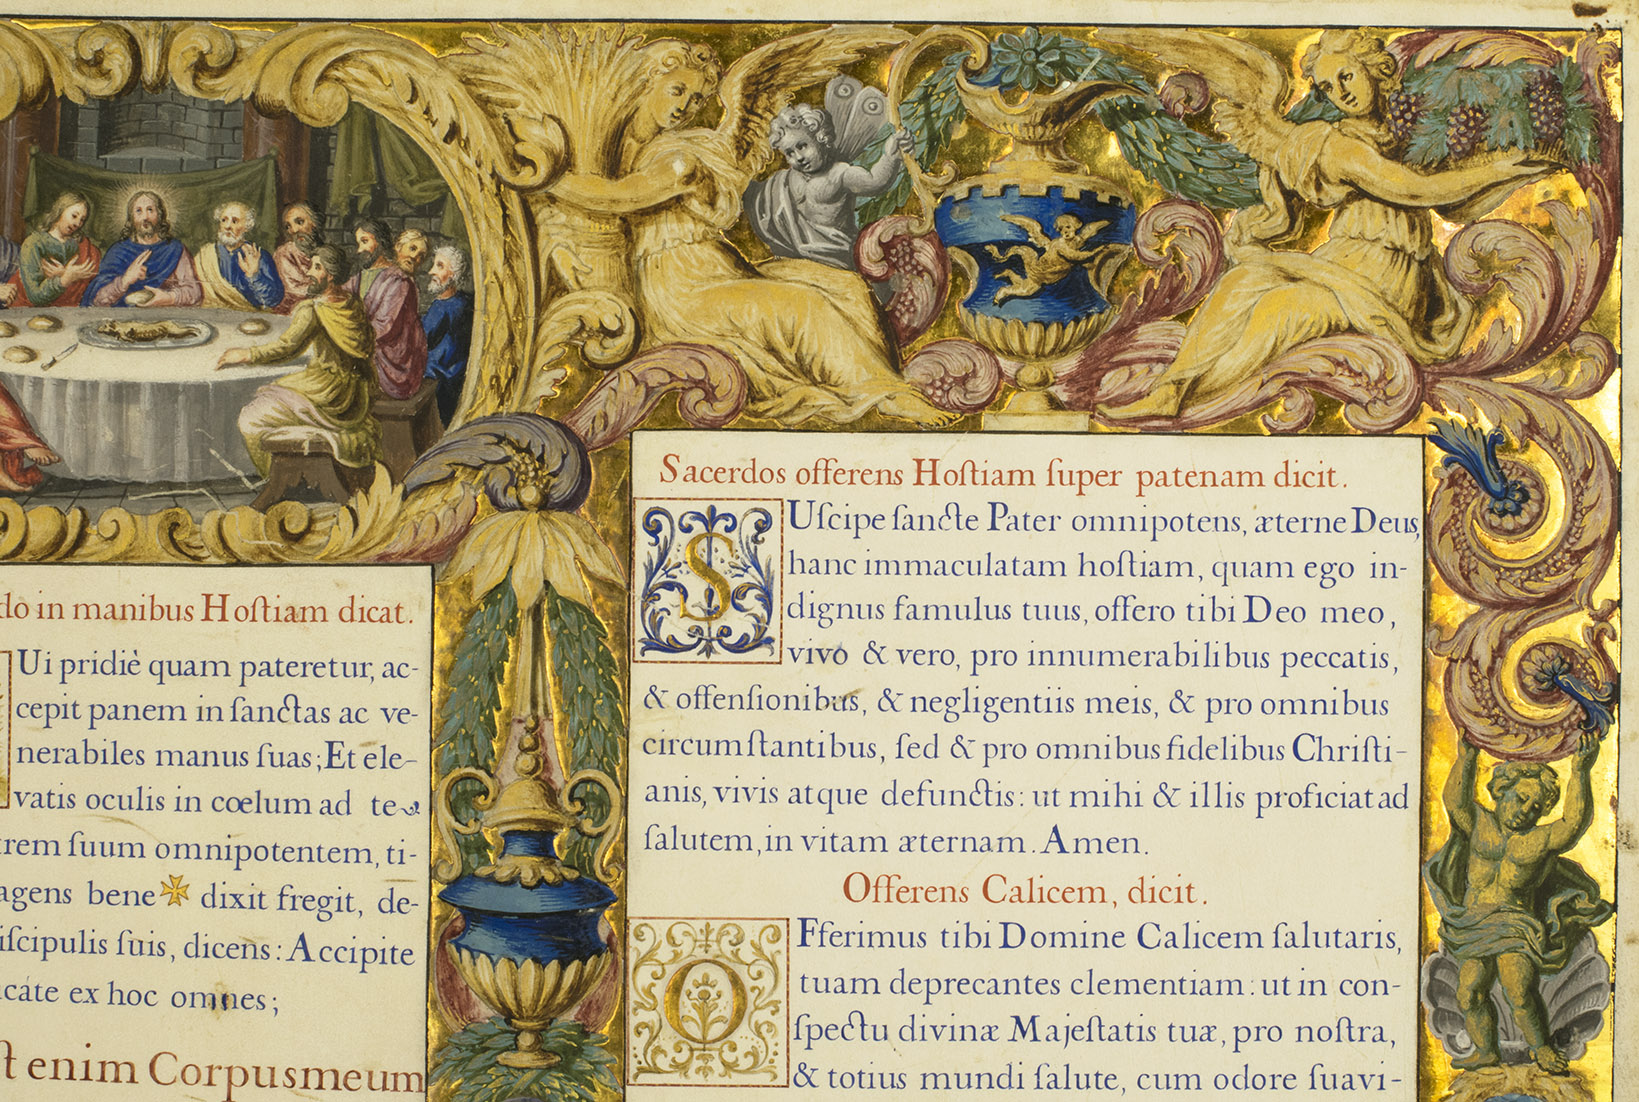 in manibus Hoſtiam dicat.
Ui pridiè quam pateretur, ac-
cepit panem in ſanctas ac ve-
nerabiles manus ſuas; Et ele-
vatis oculis in cœlum ad te
ſuum omnipotentem, ti-
agens bene ✠ dixit fregit, de-
iſcipulis ſuis, dicens: Accipite
ex hoc omnes;
enim Corpus meum
Sacerdos offerens Hoſtiam ſuper patenam dicit.
SUſcipe ſancte Pater omnipotens, æterne Deus,
hanc immaculatam hoſtiam, quam ego in-
dignus famulus tuus, offero tibi Deo meo,
vivo & vero, pro innumerabilibus peccatis,
& offenſionibus, & negligentiis meis, & pro omnibus
circumſtantibus, ſed & pro omnibus fidelibus Chriſti-
anis, vivis atque defunctis: ut mihi & illis proficiat ad
ſalutem, in vitam æternam. Amen.
Offerens Calicem, dicit.
OFferimus tibi Domine Calicem ſalutaris,
tuam deprecantes clementiam: ut in con-
ſpectu divinæ Majeſtatis tuæ, pro noſtra,
& totius mundi ſalute, cum odore ſuavi-